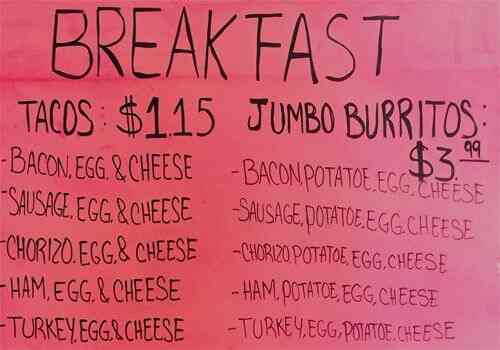 BREAKFAST
TACOS: $1.15
-BACON, EGG, & CHEESE
-SAUSAGE, EGG, & CHEESE
-CHORIZO, EGG, & CHEESE
-HAM, EGG, & CHEESE
-TURKEY, EGG & CHEESE
JUMBO BURRITOS:
$3.99
-BACON, POTATOE, EGG, CHEESE
-SAUSAGE, POTATOE, EGG, CHEESE
-CHORIZO, POTATOE, EGG, CHEESE
-HAM, POTATOE, EGG, CHEESE
-TURKEY, EGG, POTATOE, CHEESE